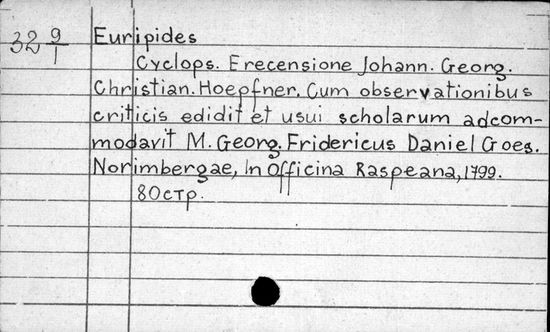 32 9/1
Euripides
Cyclops. E recensione Johann. Georg.
Christian. Hoepfner. Cum observationibus
criticis edidit et usui scholarum adcom-
modavit M. Georg. Fridericus Daniel Goes.
Norimbergae, In Officina Raspeana, 1799.
80 стр.